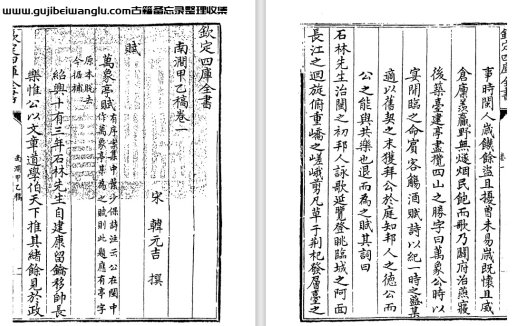 www.gujibeiwanglu.com古籍备忘录整理收集
欽定四庫全書
南澗甲乙稿卷一
宋 韓元吉 撰
賦
萬象亭賦 有序 案集中葉少保詩注云公在閩中
作萬象亭某為之賦則此題應有亭字
原本脫去
今仍補
紹興十有三年石林先生自建康留鑰移帥長
樂惟公以文章道學伯天下推其緒餘見於政
欽定四庫全書
南澗甲乙稿
一
事時閩人歲饑餘盜且擾曾未易歲既懷且威
倉廩羨贏野無燧烟民飽而歌乃闢府治燕寢
後築臺建亭盡攬四山之勝字曰萬象公時以
宴閒臨之命賓客觴酒賦詩以紀一時之盛某
適以舊契之末獲拜公於庭知邦人之德公而
公之能與共樂也退而為之賦其詞曰
石林先生治閩之初邦人詠歌延覽登眺臨城之阿面
長江之迴旋俯重嶠之嵯峨剪凡草于荆杞發層臺之